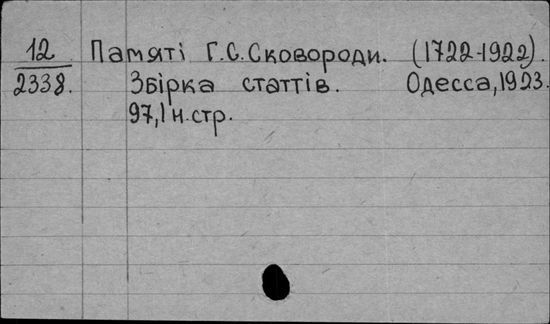 12 Памяті Г.С.Сковороди. (1722-1922).
2338. Збірка статтів. Одесса, 1923.
97, 1 н.стр.